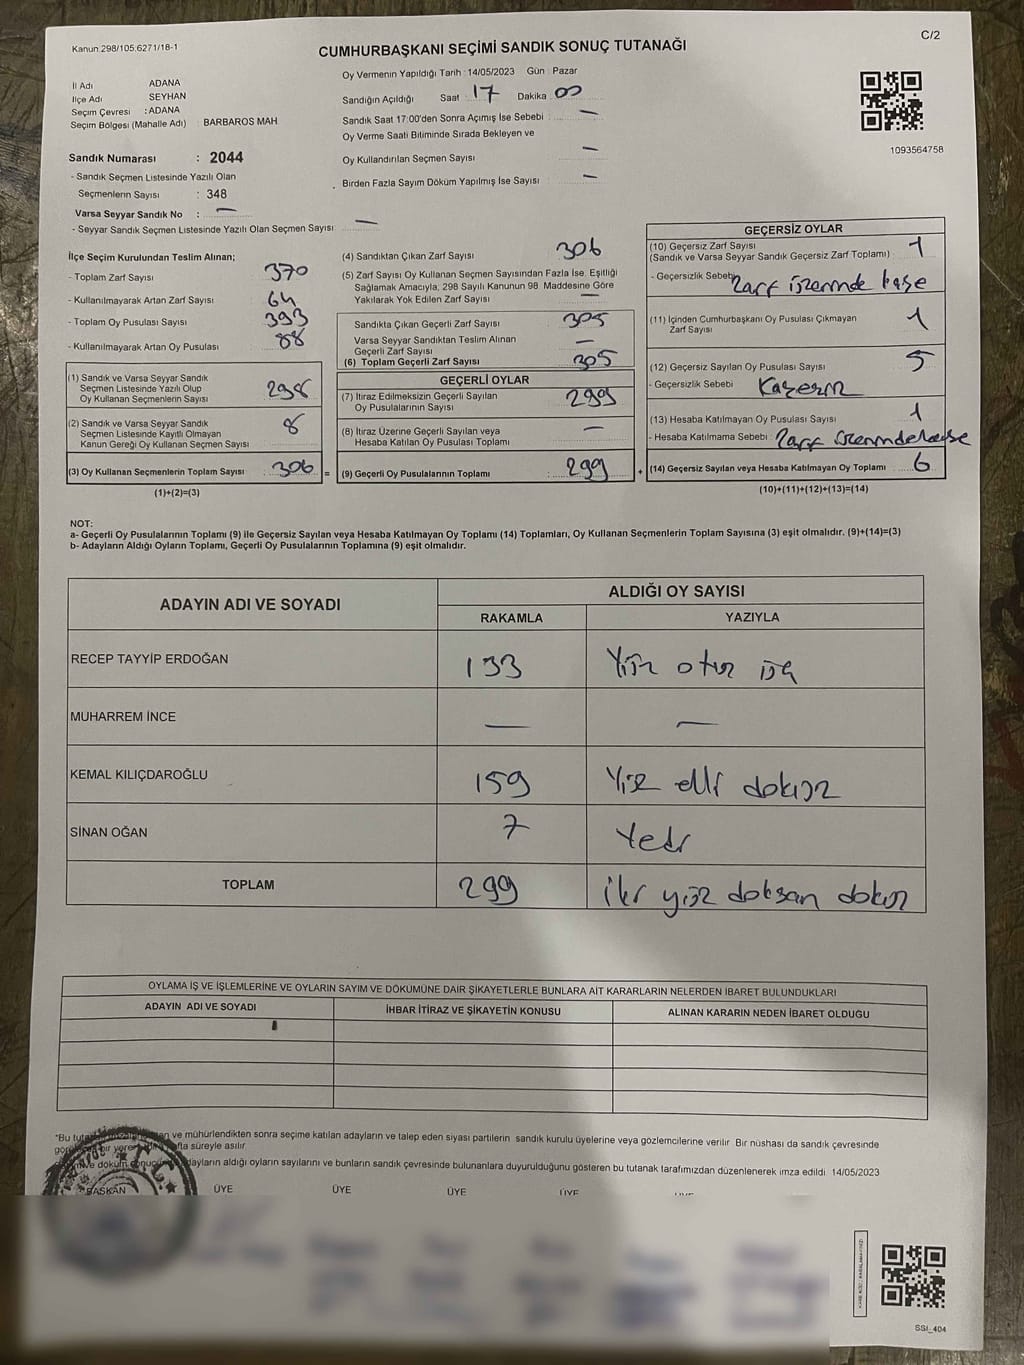 Kanun 298/105.6271/18-1
C/2
CUMHURBAŞKANI SEÇİMİ SANDIK SONUÇ TUTANAĞI
İl Adı ADANA
İlçe Adı SEYHAN
Seçim Çevresi : ADANA
Seçim Bölgesi (Mahalle Adı) : BARBAROS MAH.
Sandık Numarası : 2044
- Sandık Seçmen Listesinde Yazılı Olan
Seçmenlerin Sayısı : 348
Varsa Seyyar Sandık No : —
- Seyyar Sandık Seçmen Listesinde Yazılı Olan Seçmen Sayısı —
Oy Vermenin Yapıldığı Tarih : 14/05/2023 Gün : Pazar
Sandığın Açıldığı Saat 17 Dakika 00
Sandık Saat 17:00'den Sonra Açımış İse Sebebi : —
Oy Verme Saati Bitiminde Sırada Bekleyen ve
Oy Kullandırılan Seçmen Sayısı —
Birden Fazla Sayım Döküm Yapılmış İse Sayısı —
1093564758
İlçe Seçim Kurulundan Teslim Alınan;
- Toplam Zarf Sayısı 370
- Kullanılmayarak Artan Zarf Sayısı 64
- Toplam Oy Pusulası Sayısı 393
- Kullanılmayarak Artan Oy Pusulası 88
(1) Sandık ve Varsa Seyyar Sandık
Seçmen Listesinde Yazılı Olup
Oy Kullanan Seçmenlerin Sayısı 298
(2) Sandık ve Varsa Seyyar Sandık
Seçmen Listesinde Kayıtlı Olmayan
Kanun Gereği Oy Kullanan Seçmen Sayısı 8
(3) Oy Kullanan Seçmenlerin Toplam Sayısı 306 =
(1)+(2)=(3)
(4) Sandıktan Çıkan Zarf Sayısı 306
(5) Zarf Sayısı Oy Kullanan Seçmen Sayısından Fazla İse. Eşitliği
Sağlamak Amacıyla, 298 Sayılı Kanunun 98. Maddesine Göre
Yakılarak Yok Edilen Zarf Sayısı —
Sandıkta Çıkan Geçerli Zarf Sayısı 305
Varsa Seyyar Sandıktan Teslim Alınan
Geçerli Zarf Sayısı —
(6) Toplam Geçerli Zarf Sayısı 305
GEÇERLİ OYLAR
(7) İtiraz Edilmeksizin Geçerli Sayılan
Oy Pusulalarının Sayısı 299
(8) İtiraz Üzerine Geçerli Sayılan veya
Hesaba Katılan Oy Pusulası Toplamı —
(9) Geçerli Oy Pusulalarının Toplamı : 299 +
GEÇERSİZ OYLAR
(10) Geçersiz Zarf Sayısı
(Sandık ve Varsa Seyyar Sandık Geçersiz Zarf Toplamı) 1
- Geçersizlik Sebebi Zarf üzerinde kaşe
(11) İçinden Cumhurbaşkanı Oy Pusulası Çıkmayan
Zarf Sayısı 1
(12) Geçersiz Sayılan Oy Pusulası Sayısı 5
- Geçersizlik Sebebi
(13) Hesaba Katılmayan Oy Pusulası Sayısı 1
- Hesaba Katılmama Sebebi Zarf üzerinde kaşe
(14) Geçersiz Sayılan veya Hesaba Katılmayan Oy Toplamı 6
(10)+(11)+(12)+(13)=(14)
NOT:
a- Geçerli Oy Pusulalarının Toplamı (9) ile Geçersiz Sayılan veya Hesaba Katılmayan Oy Toplamı (14) Toplamları, Oy Kullanan Seçmenlerin Toplam Sayısına (3) eşit olmalıdır. (9)+(14)=(3)
b- Adayların Aldığı Oyların Toplamı, Geçerli Oy Pusulalarının Toplamına (9) eşit olmalıdır.
ADAYIN ADI VE SOYADI
ALDIĞI OY SAYISI
RAKAMLA YAZIYLA
RECEP TAYYİP ERDOĞAN 133 Yüz otuz üç
MUHARREM İNCE — —
KEMAL KILIÇDAROĞLU 159 Yüz elli dokuz
SİNAN OĞAN 7 Yedi
TOPLAM 299 iki yüz doksan dokuz
OYLAMA İŞ VE İŞLEMLERİNE VE OYLARIN SAYIM VE DÖKÜMÜNE DAİR ŞİKAYETLERLE BUNLARA AİT KARARLARIN NELERDEN İBARET BULUNDUKLARI
ADAYIN ADI VE SOYADI İHBAR İTİRAZ VE ŞİKAYETİN KONUSU ALINAN KARARIN NEDEN İBARET OLDUĞU
"Bu ve mühürlendikten sonra seçime katılan adayların ve talep eden siyasi partilerin sandık kurulu üyelerine veya gözlemcilerine verilir Bir nüshası da sandık çevresinde
bir yere hafta süreyle asılır.
ve döküm sonucu adayların aldığı oyların sayılarını ve bunların sandık çevresinde bulunanlara duyurulduğunu gösteren bu tutanak tarafımızdan düzenlenerek imza edildi. 14/05/2023
BAŞKAN ÜYE ÜYE ÜYE ÜYE
SSI_404